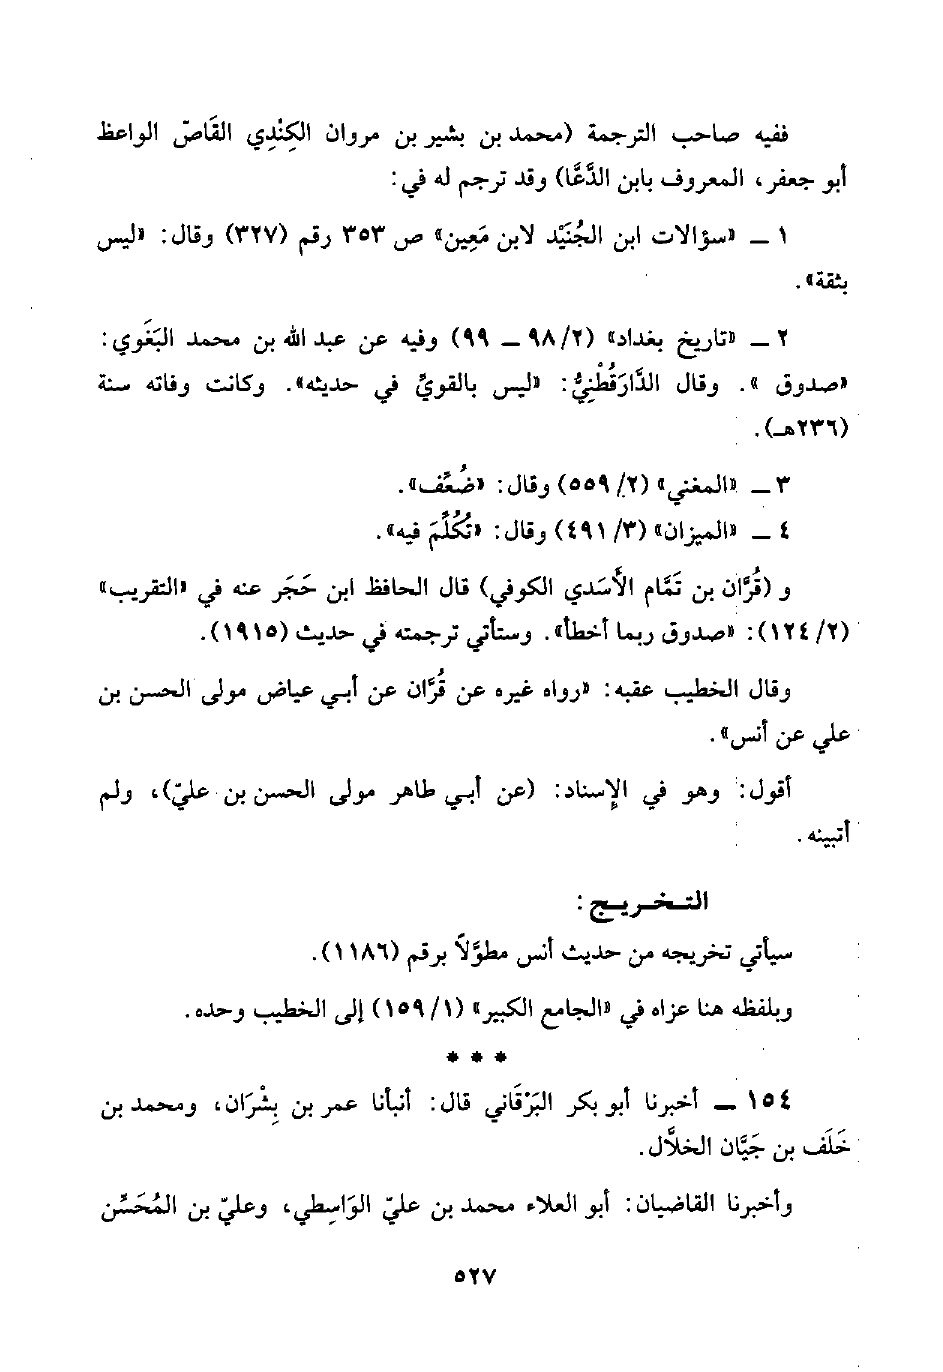 ففيه صاحب الترجمة (محمد بن بشير بن مروان الكِنْدِي القَاصّ الواعظ
أبو جعفر، المعروف بابن الدَّعَّا) وقد ترجم له في:
١ ــ «سؤالات ابن الجُنَيْد لابن مَعِين» ص ٣٥٣ رقم (٣٢٧) وقال: «ليس
بثقة».
٢ ــ «تاريخ بغداد» (٩٨/٢ ــ ٩٩) وفيه عن عبد الله بن محمد البَغَوي:
«صدوق». وقال الدَّارَقُطْنِيُّ: «ليس بالقويِّ في حديثه». وكانت وفاته سنة
(٢٣٦هـ).
٣ ــ «المغني» (٥٥٩/٢) وقال: «ضُعِّف».
٤ ــ «الميزان» (٤٩١/٣) وقال: «تُكُلِّمَ فيه».
و (قُرَّان بن تَمَّام الأَسَدي الكوفي) قال الحافظ ابن حَجَر عنه في «التقريب»
(١٢٤/٢): «صدوق ربما أخطأ». وستأتي ترجمته في حديث (١٩١٥).
وقال الخطيب عقبه: «رواه غيره عن قُرَّان عن أبي عياض مولى الحسن بن
علي عن أنس».
أقول: وهو في الإسناد: (عن أبي طاهر مولى الحسن بن عليّ)، ولم
أتبينه.
التـخـريـج:
سيأتي تخريجه من حديث أنس مطوَّلاً برقم (١١٨٦).
وبلفظه هنا عزاه في «الجامع الكبير» (١٥٩/١) إلى الخطيب وحده.
* * *
١٥٤ ــ أخبرنا أبو بكر البَرْقَاني قال: أنبأنا عمر بن بِشْرَان، ومحمد بن
خَلَف بن جَيَّان الخلَّال.
وأخبرنا القاضيان: أبو العلاء محمد بن عليّ الوَاسِطي، وعليّ بن المُحَسِّن
٥٢٧